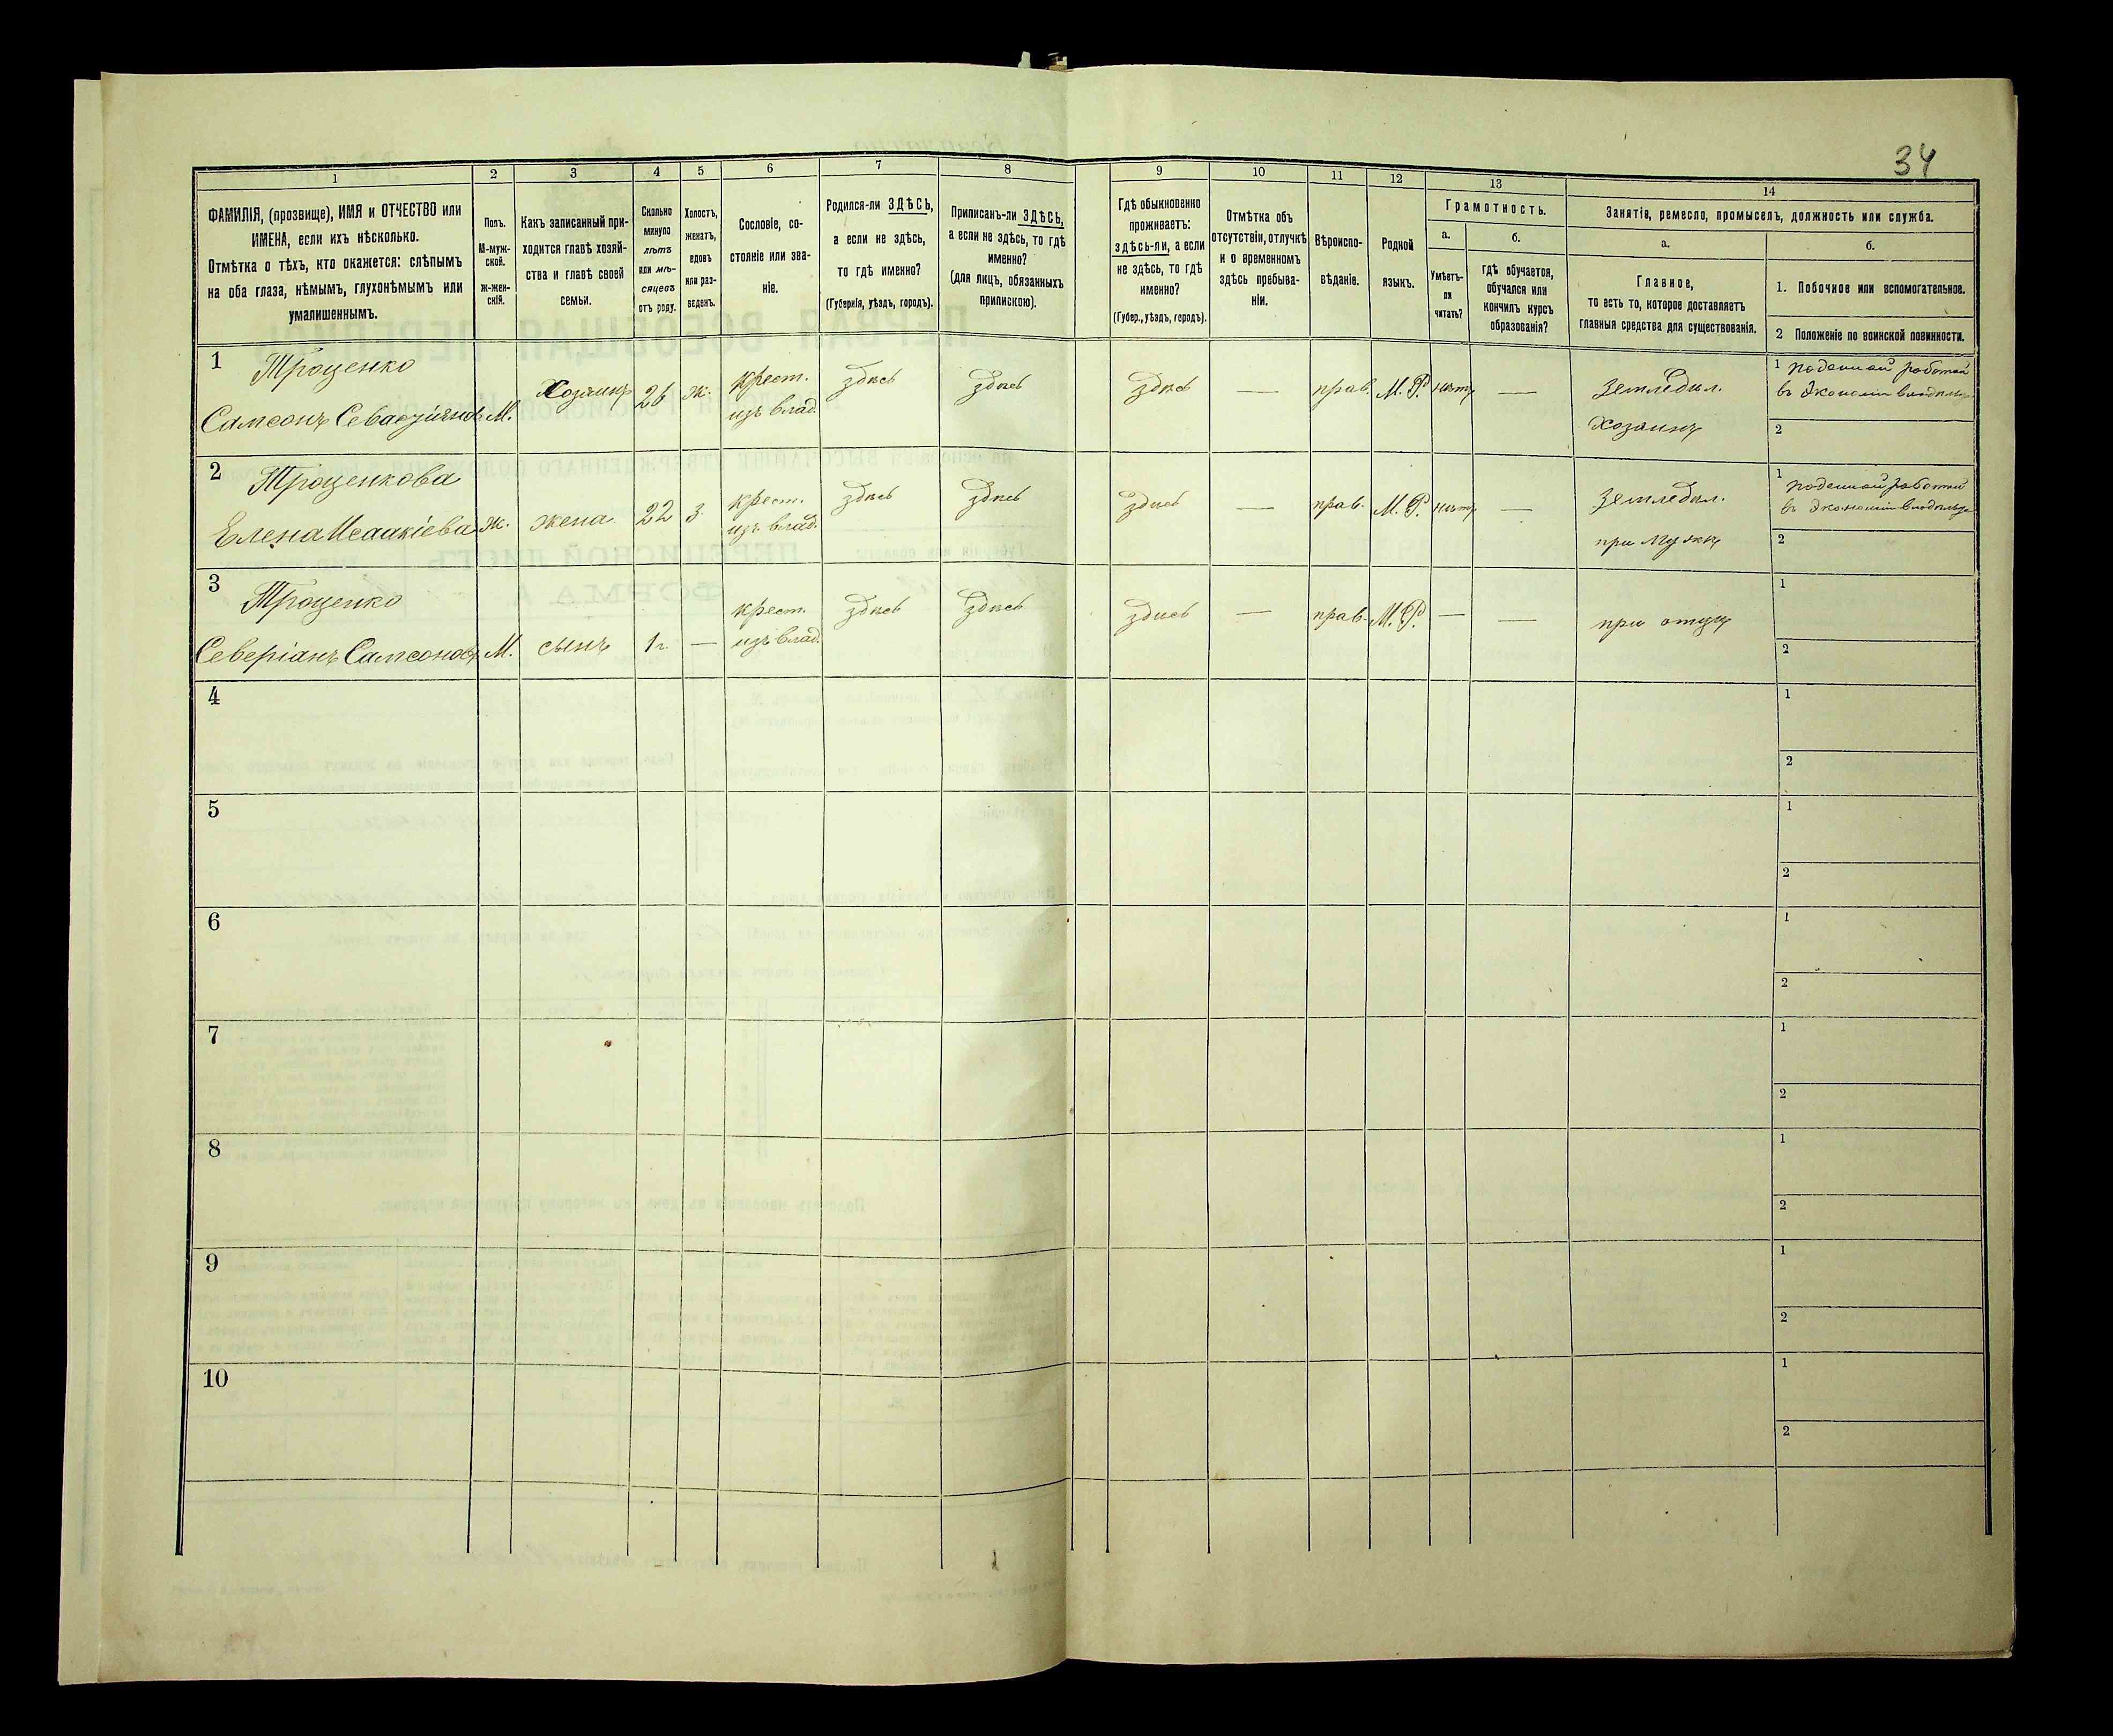 34
1
2
3
4
5
6
7
8
9
10
11
12
13
14
ФАМИЛІЯ, (прозвище), ИМЯ и ОТЧЕСТВО или
ИМЕНА, если ихъ нѣсколько.
Отмѣтка о тѣхъ, кто окажется: слѣпымъ
на оба глаза, нѣмымъ, глухонѣмымъ или
умалишеннымъ.
Полъ.
М-муж-
ской.
Ж-жен-
скій.
Какъ записанный при-
ходится главѣ хозяй-
ства и главѣ своей
семьи.
Сколько
минуло
лѣтъ
или мѣ-
сяцевъ
отъ роду.
Холостъ,
женатъ,
вдовъ
или раз-
веденъ.
Сословіе, со-
стояніе или зва-
ніе.
Родился-ли ЗДѢСЬ,
а если не здѣсь,
то гдѣ именно?
(Губернія, уѣздъ, городъ).
Приписанъ-ли ЗДѢСЬ,
а если не здѣсь, то гдѣ
именно?
(для лицъ, обязанныхъ
припискою).
Гдѣ обыкновенно
проживаетъ:
здѣсь-ли, а если
не здѣсь, то гдѣ
именно?
(Губер., уѣздъ, городъ).
Отмѣтка объ
отсутствіи, отлучкѣ
и о временномъ
здѣсь пребыва-
ніи.
Вѣроиспо-
вѣданіе.
Родной
языкъ.
Грамотность.
а.
Умѣетъ-
ли
читать?
б.
гдѣ обучается,
обучался или
кончилъ курсъ
образованія?
Занятія, ремесло, промыселъ, должность или служба.
а.
Главное,
то есть то, которое доставляетъ
главныя средства для существованія.
б.
1. Побочное или вспомогательное.
2 Положеніе по воинской повинности.
1
Троценко
Самсонъ Севастіяновъ
М.
Хозяинъ
26
ж.
крест.
изъ влад.
здѣсь
здѣсь
здѣсь
—
прав.
М. Р.
нѣтъ
—
Земледѣл.
Хозяинъ
1 поденной работой
въ Экономіи владѣльца
2
2
Троценкова
Елена Исаакіева
ж.
жена
22
з.
крест.
изъ влад.
здѣсь
здѣсь
здѣсь
—
прав.
М. Р.
нѣтъ
—
Земледѣл.
при мужѣ
1
поденной работой
въ Экономіи владѣльца
2
3
Троценко
Северіанъ Самсоновъ
М.
сынъ
1 г.
—
крест.
изъ влад.
здѣсь
здѣсь
здѣсь
—
прав.
М. Р.
—
—
при отцѣ
1
2
4
1
2
5
1
2
6
1
2
7
1
2
8
1
2
9
1
2
10
1
2